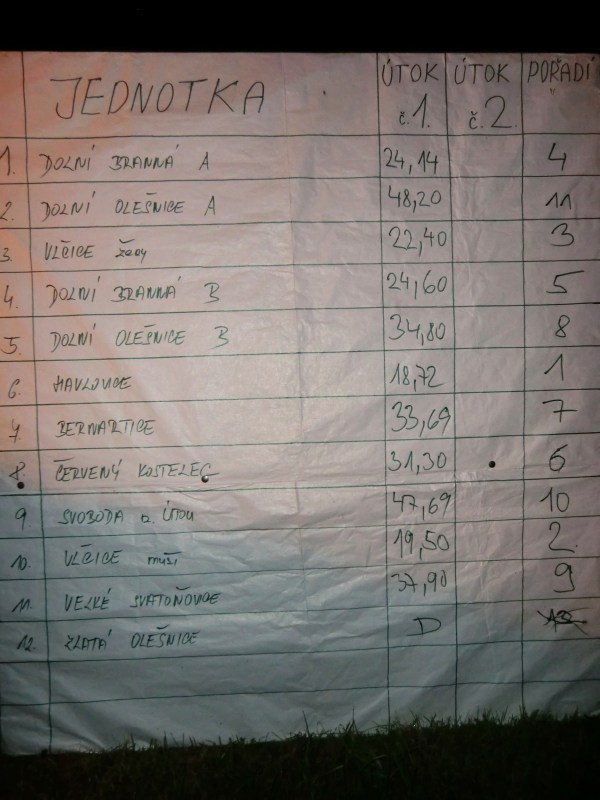 JEDNOTKA ÚTOK č.1. ÚTOK č.2. POŘADÍ
1. DOLNÍ BRANNÁ A 24,14 4
2. DOLNÍ OLEŠNICE A 48,20 11
3 VLČICE ženy 22,40 3
4. DOLNÍ BRANNÁ B 24,60 5
5. DOLNÍ OLEŠNICE B 34,80 8
6. HAVLOVICE 18,72 1
7. BERNARTICE 33,69 7
8. ČERVENÝ KOSTELEC 31,30 6
9. SVOBODA n. ÚPOU 47,69 10
10. VLČICE muži 19,50 2.
11. VELKÉ SVATOŇOVICE 37,90 9
12. ZLATÁ OLEŠNICE D